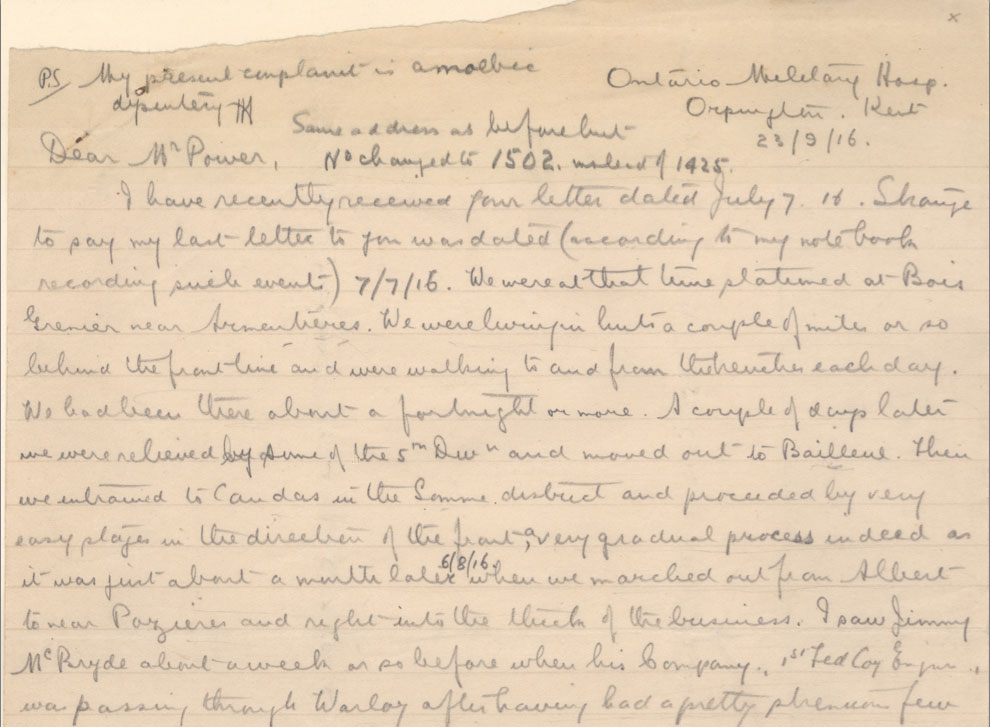 x
PS My present complaint is amoebic
dysentery
Ontario Military Hosp.
Orpington. Kent
23/9/16.
Same address as before but
No changed to 1502. instead of 1425.
Dear Mr Power,
I have recently received your letter dated July 7. 16. Strange
to say my last letter to you was dated (according to my note book
recording such events) 7/7/16. We were at that time stationed at Bois
Grenier near Armentières. We were living in huts a couple of miles or so
behind the front line and were walking to and from the trenches each day.
We had been there about a fortnight or more. A couple of days later
we were relieved by some of the 5th Divn and moved out to Bailleul. Then
we entrained to Candas in the Somme district and proceeded by very
easy stages in the direction of the front, a very gradual process indeed as
it was just about a month later 6/8/16 when we marched out from Albert
to near Pozieres and right into the thick of the business. I saw Jimmy
McBryde about a week or so before when his Company, 1st Fed Coy Engrs.,
was passing through Warloy after having had a pretty strenuous few